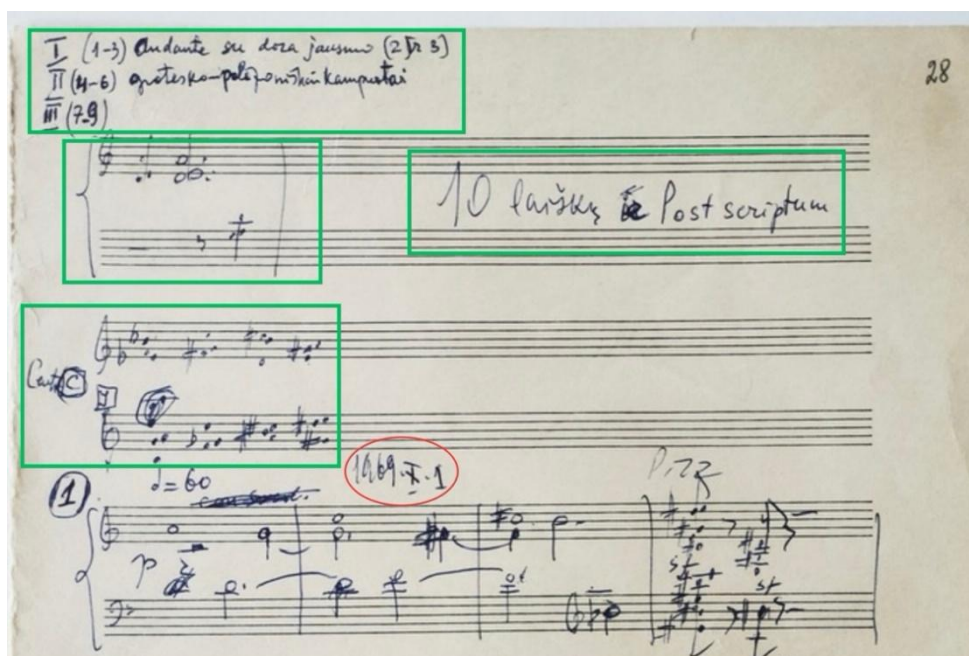 I (1-3) Andante su doza jausmo (2 ir 3)
II (4-6) grotesko-polifoniškai kampuotai
III (7-9)
28
10 laiškų Post scriptum
C
1
♩=60
1969.X.1
Pizz
p